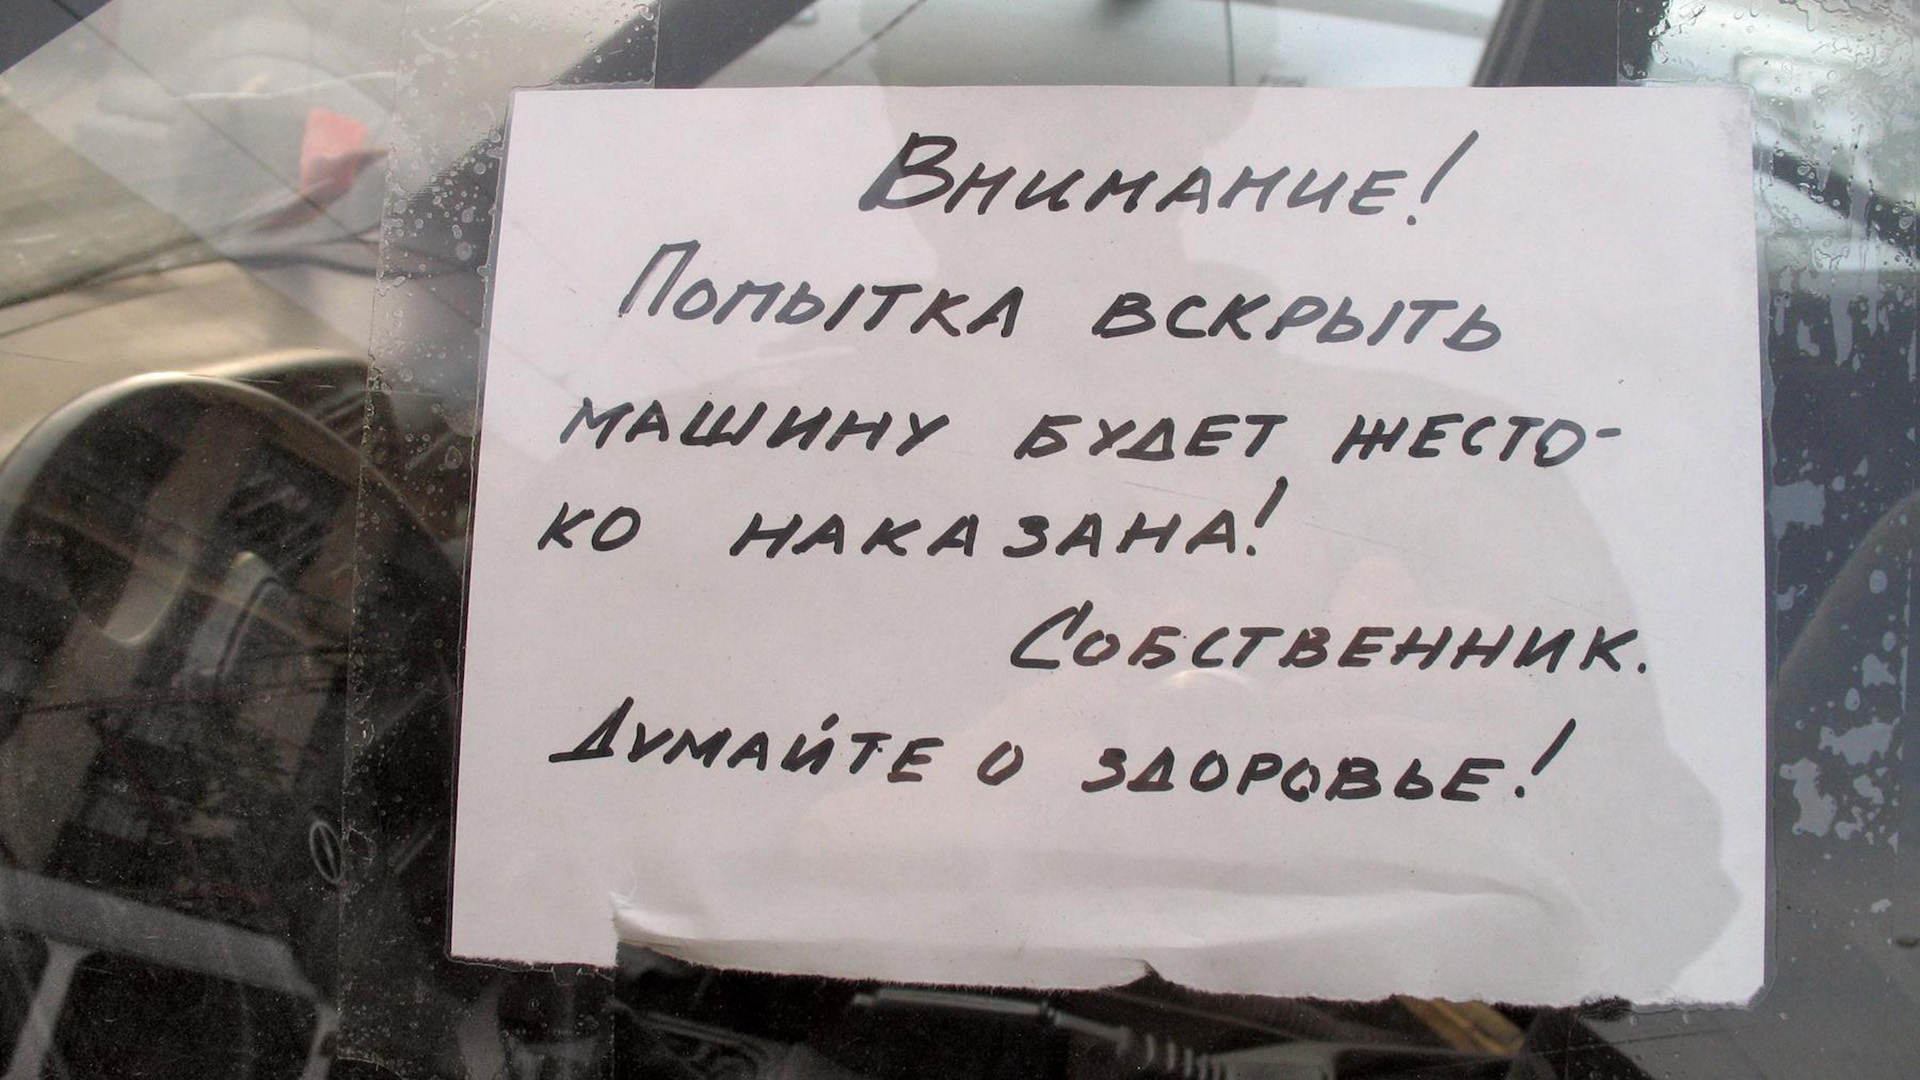 Внимание!
Попытка вскрыть
машину будет жесто-
ко наказана!
Собственник.
Думайте о здоровье!